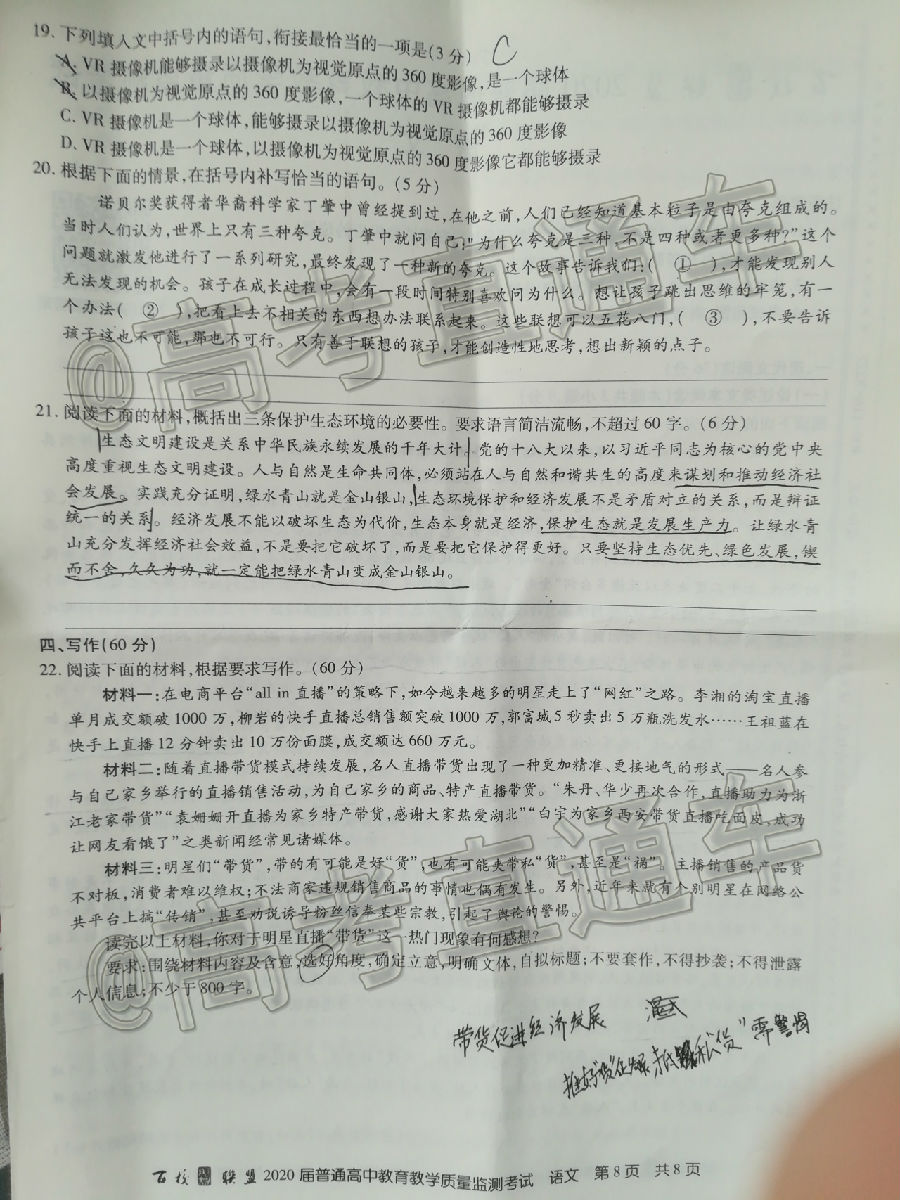 19. 下列填入文中括号内的语句,衔接最恰当的一项是(3 分) C
A. VR 摄像机能够摄录以摄像机为视觉原点的 360 度影像,是一个球体
B. 以摄像机为视觉原点的 360 度影像,一个球体的 VR 摄像机都能够摄录
C. VR 摄像机是一个球体,能够摄录以摄像机为视觉原点的 360 度影像
D. VR 摄像机是一个球体,以摄像机为视觉原点的 360 度影像它都能够摄录
20. 根据下面的情景,在括号内补写恰当的语句。(5 分)
诺贝尔奖获得者华裔科学家丁肇中曾经提到过,在他之前,人们已经知道基本粒子是由夸克组成的。
当时人们认为,世界上只有三种夸克。丁肇中就问自己:"为什么夸克是三种,不是四种或者更多种?"这个
问题就激发他进行了一系列研究,最终发现了一种新的夸克。这个故事告诉我们:( ① ),才能发现别人
无法发现的机会。孩子在成长过程中,会有一段时间特别喜欢问为什么。想让孩子跳出思维的牢笼,有一
个办法( ② ),把看上去不相关的东西想办法联系起来。这些联想可以五花八门,( ③ ),不要告诉
孩子这也不可能,那也不可行。只有善于联想的孩子,才能创造性地思考,想出新颖的点子。
21. 阅读下面的材料,概括出三条保护生态环境的必要性。要求语言简洁流畅,不超过 60 字。(6 分)
生态文明建设是关系中华民族永续发展的千年大计,党的十八大以来,以习近平同志为核心的党中央
高度重视生态文明建设。人与自然是生命共同体,必须站在人与自然和谐共生的高度来谋划和推动经济社
会发展。实践充分证明,绿水青山就是金山银山,生态环境保护和经济发展不是矛盾对立的关系,而是辩证
统一的关系。经济发展不能以破坏生态为代价,生态本身就是经济,保护生态就是发展生产力。让绿水青
山充分发挥经济社会效益,不是要把它破坏了,而是要把它保护得更好。只要坚持生态优先、绿色发展,锲
而不舍,久久为功,就一定能把绿水青山变成金山银山。
四、写作(60 分)
22. 阅读下面的材料,根据要求写作。(60 分)
材料一:在电商平台"all in 直播"的策略下,如今越来越多的明星走上了"网红"之路。李湘的淘宝直播
单月成交额破 1000 万,柳岩的快手直播总销售额突破 1000 万,郭富城 5 秒卖出 5 万瓶洗发水……王祖蓝在
快手上直播 12 分钟卖出 10 万份面膜,成交额达 660 万元。
材料二:随着直播带货模式持续发展,名人直播带货出现了一种更加精准、更接地气的形式——名人参
与自己家乡举行的直播销售活动,为自己家乡的商品、特产直播带货。"朱丹、华少再次合作,直播助力为浙
江老家带货""袁姗姗开直播为家乡特产带货,感谢大家热爱湖北""白宇为家乡西安带货直播吃面皮,成功
让网友看饿了"之类新闻经常见诸媒体。
材料三:明星们"带货",带的有可能是好"货",也有可能夹带私"货",甚至是"祸"。主播销售的产品货
不对板,消费者难以维权;不法商家违规销售商品的事情也偶有发生。另外,近年来就有个别明星在网路公
共平台上搞"传销",甚至劝说诱导粉丝信奉某些宗教,引起了舆论的警惕。
读完以上材料,你对于明星直播"带货"这一热门现象有何感想?
要求:围绕材料内容及含意,选好角度,确定立意,明确文体,自拟标题;不要套作,不得抄袭;不得泄露
个人信息;不少于 800 字。
带货促进经济发展
私货" 需警惕
百校联盟 2020 届普通高中教育教学质量监测考试 语文 第 8 页 共 8 页
@高考直通车
@高考直通车